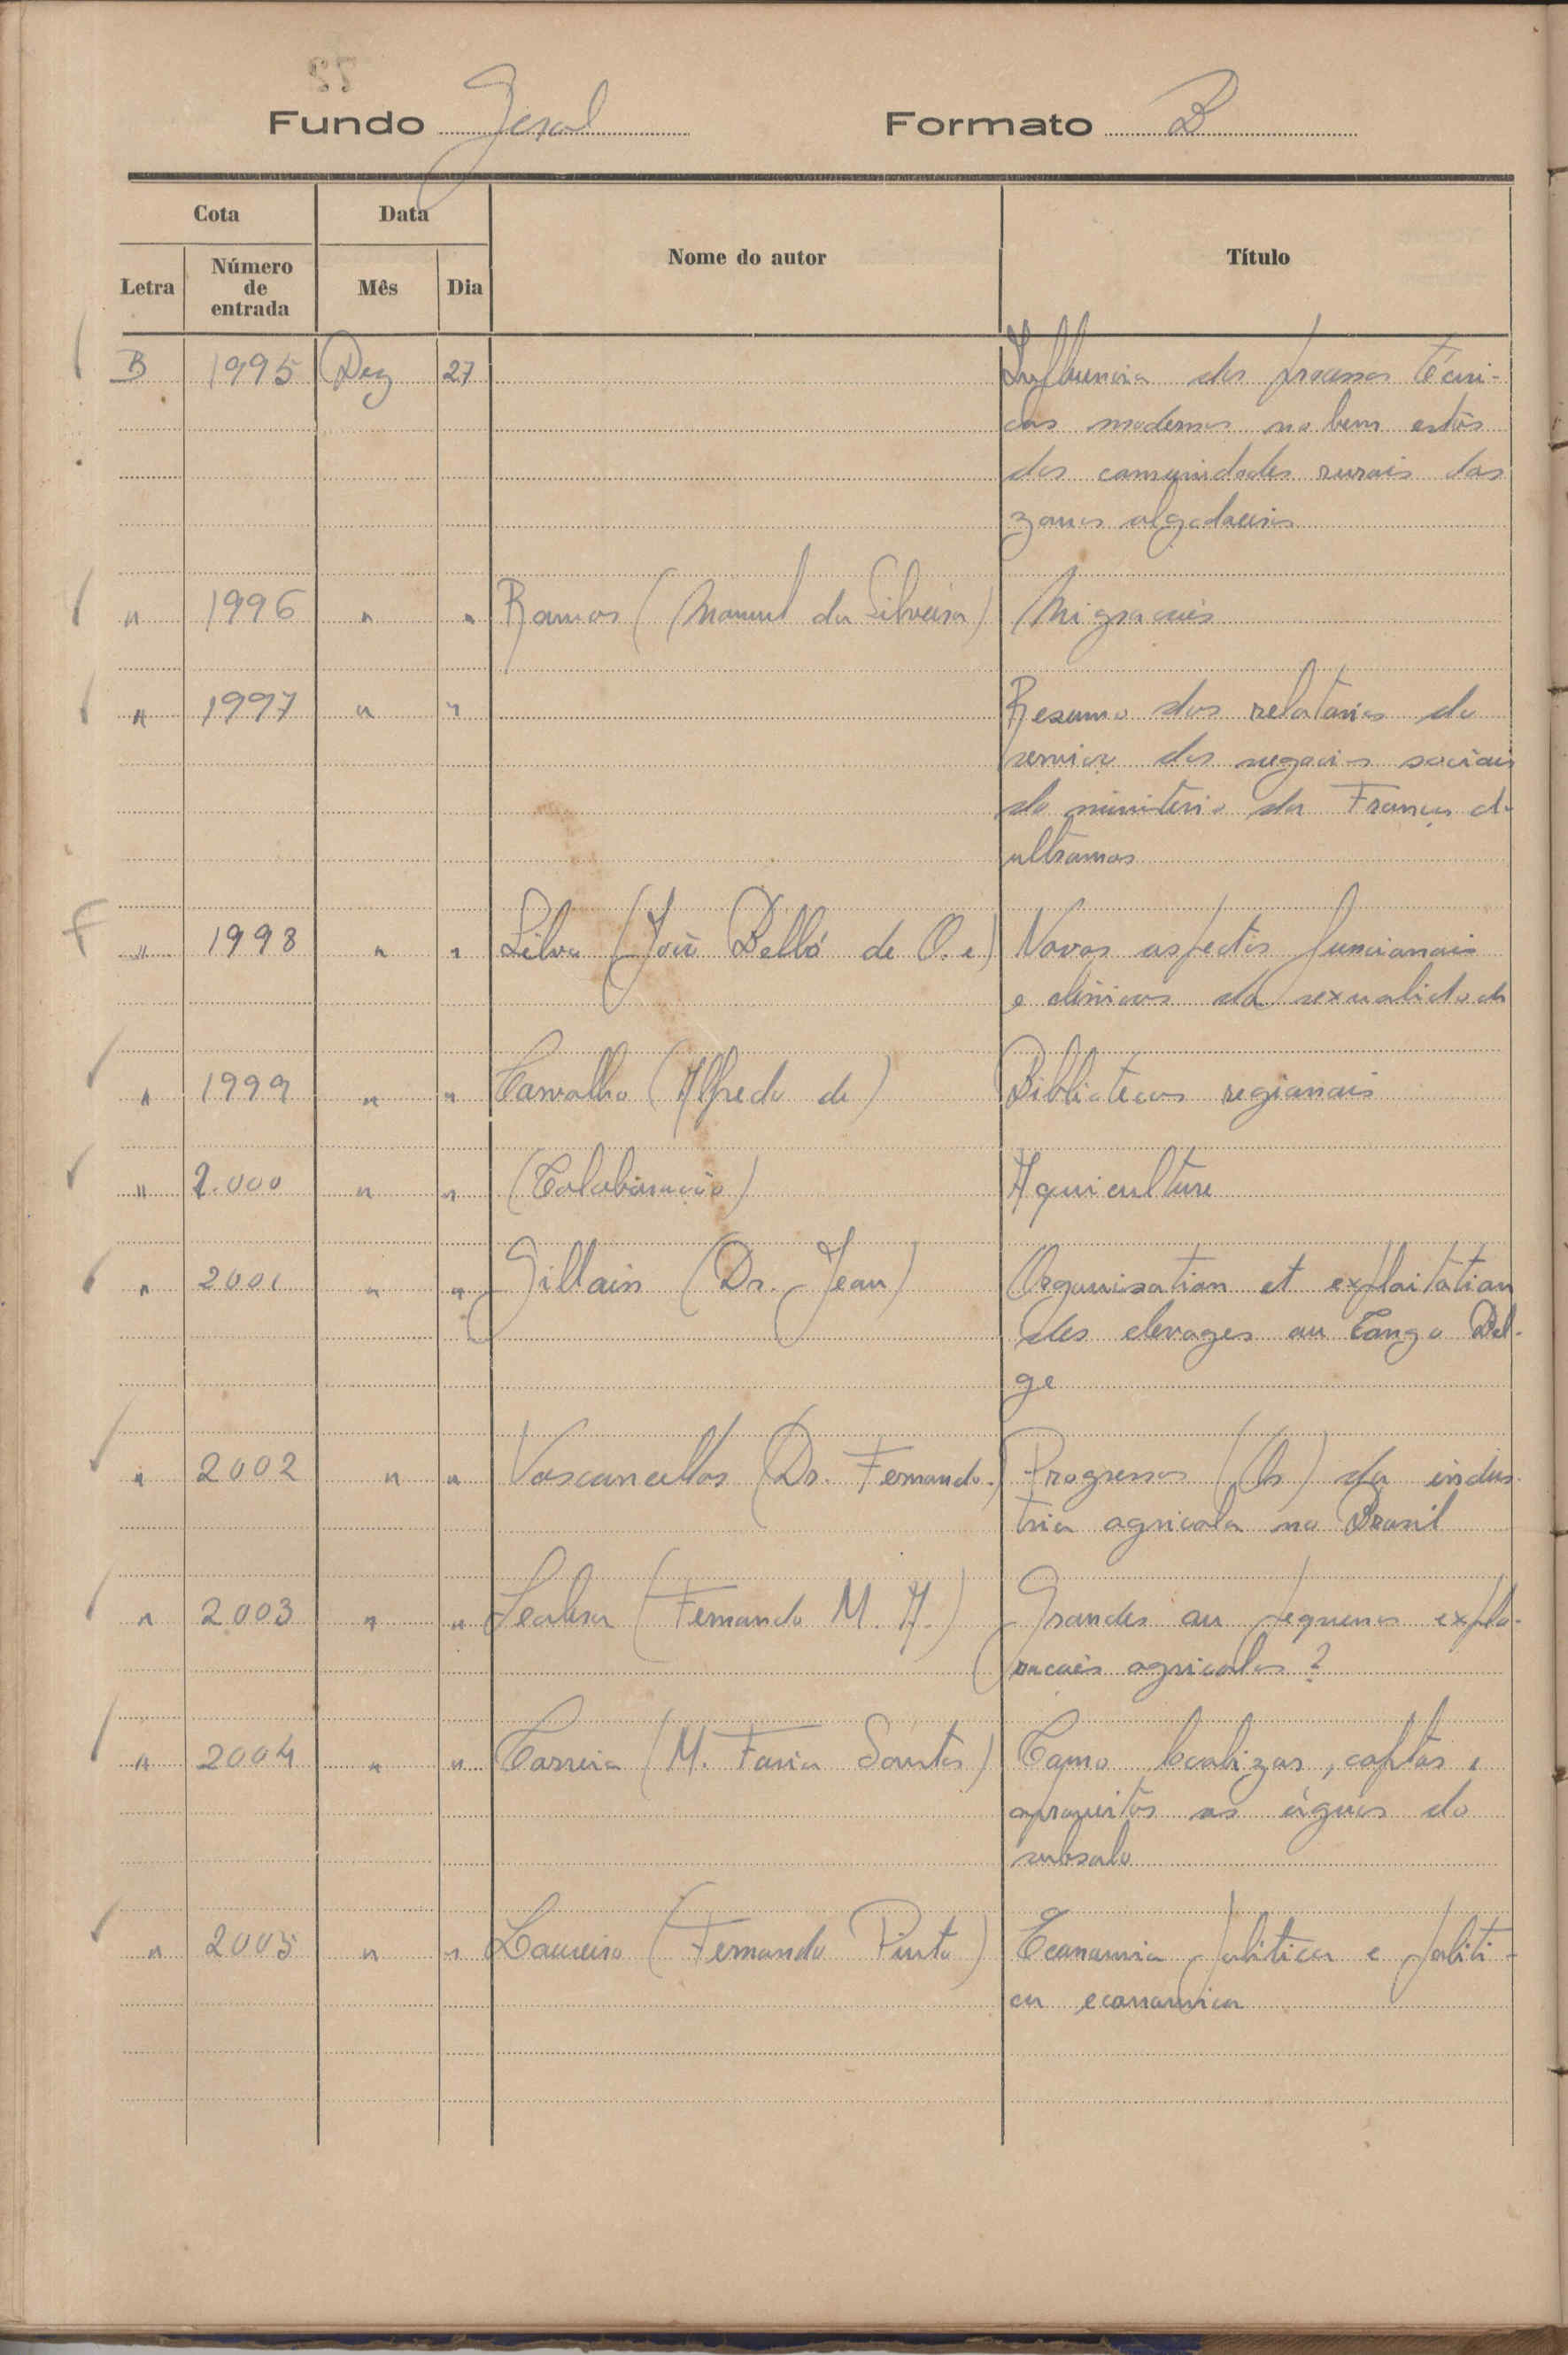 Fundo Geral Formato B
Cota Data Nome do autor Título
Letra Número de entrada Mês Dia
B 1995 Dez 27 Influencia dos processos técni-
cos modernos no bem estar
das comunidades rurais das
zonas algodoeiras
" 1996 " " Ramos (Manuel da Silveira) Migracões
" 1997 " " Resumo dos relatorios do
servico dos negocios sociais
do ministerio da França do
ultramar
F " 1998 " " Silva (João Belló de O. e) Novos aspectos funcionais
e clinicos da sexualidade
" 1999 " " Carvalho (Alfredo de) Bibliotecas regionais
" 2.000 " " (Colaboração) Aquiculture
" 2001 " " Gillain (Dr. Jean) Organisation et exploitation
des elevages au Congo Bel-
ge
" 2002 " " Vasconcellos (Dr. Fernando.) Progressos (Os) da indus-
tria agricola no Brasil
" 2003 " " Seabra (Fernando M. A.) Grandes ou pequenas explo-
racoẽs agricolas?
" 2004 " " Correia (M. Faria Santos) Como localizar, captar e
aproveitar as águas do
subsolo
" 2005 " " Loureiro (Fernando Pinto) Economia politica e politi-
ca economica